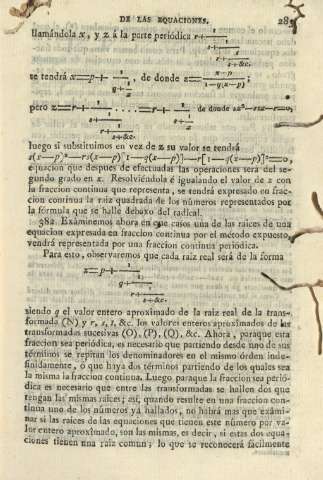 DE LAS EQUACIONES. 28
llamándola x, y z á la parte periódica r+1
s+1
r+1
s+&c.
se tendrá x=p+1, de donde z=x-p
q+1 1-q(x-p);
z
pero z=r+1 ....=r+1 de donde sz²-rsz-r=0,
s+1 s+1
r+1 z
s+&c.
luego si substituimos en vez de z su valor se tendrá
s(x-p)²-rs(x-p)[1-q(x-p)]-r[1-q(x-p)]²=0,
equacion que despues de efectuadas las operaciones será del se-
gundo grado en x. Resolviéndola é igualando el valor de x con
la fraccion continua que representa, se tendrá expresado en frac-
cion continua la raiz quadrada de los números representados por
la fórmula que se halle debaxo del radical.
382 Exâminemos ahora en que casos una de las raices de una
equacion expresada en fraccion continua por el método expuesto
vendrá representada por una fraccion continua periódica.
Para esto, observaremos que cada raiz real será de la forma
x=p+1
q+1
r+1
s+&c.
siendo q el valor entero aproximado de la raiz real de la trans-
formada (N) y r, s, t, &c. los valores enteros aproximados de las
transformadas sucesivas (O), (P), (Q), &c. Ahora, paraque esta
fraccion sea periódica, es necesario que partiendo desde uno de sus
términos se repitan los denominadores en el mismo órden inde-
finidamente, ó que haya dos términos partiendo de los quales sea
la misma la fraccion continua. Luego paraque la fraccion sea perió-
dica es necesario que entre las transformadas se hallen dos que
tengan las mismas raices; asi, quando resulte en una fraccion con-
tinua uno de los números ya hallados, no habrá mas que exâmi-
nar si las raices de las equaciones que tienen este número por va-
lor entero aproximado, son las mismas, es decir, si estas dos equa-
ciones tienen una raiz comun; lo que se reconocerá facilmente